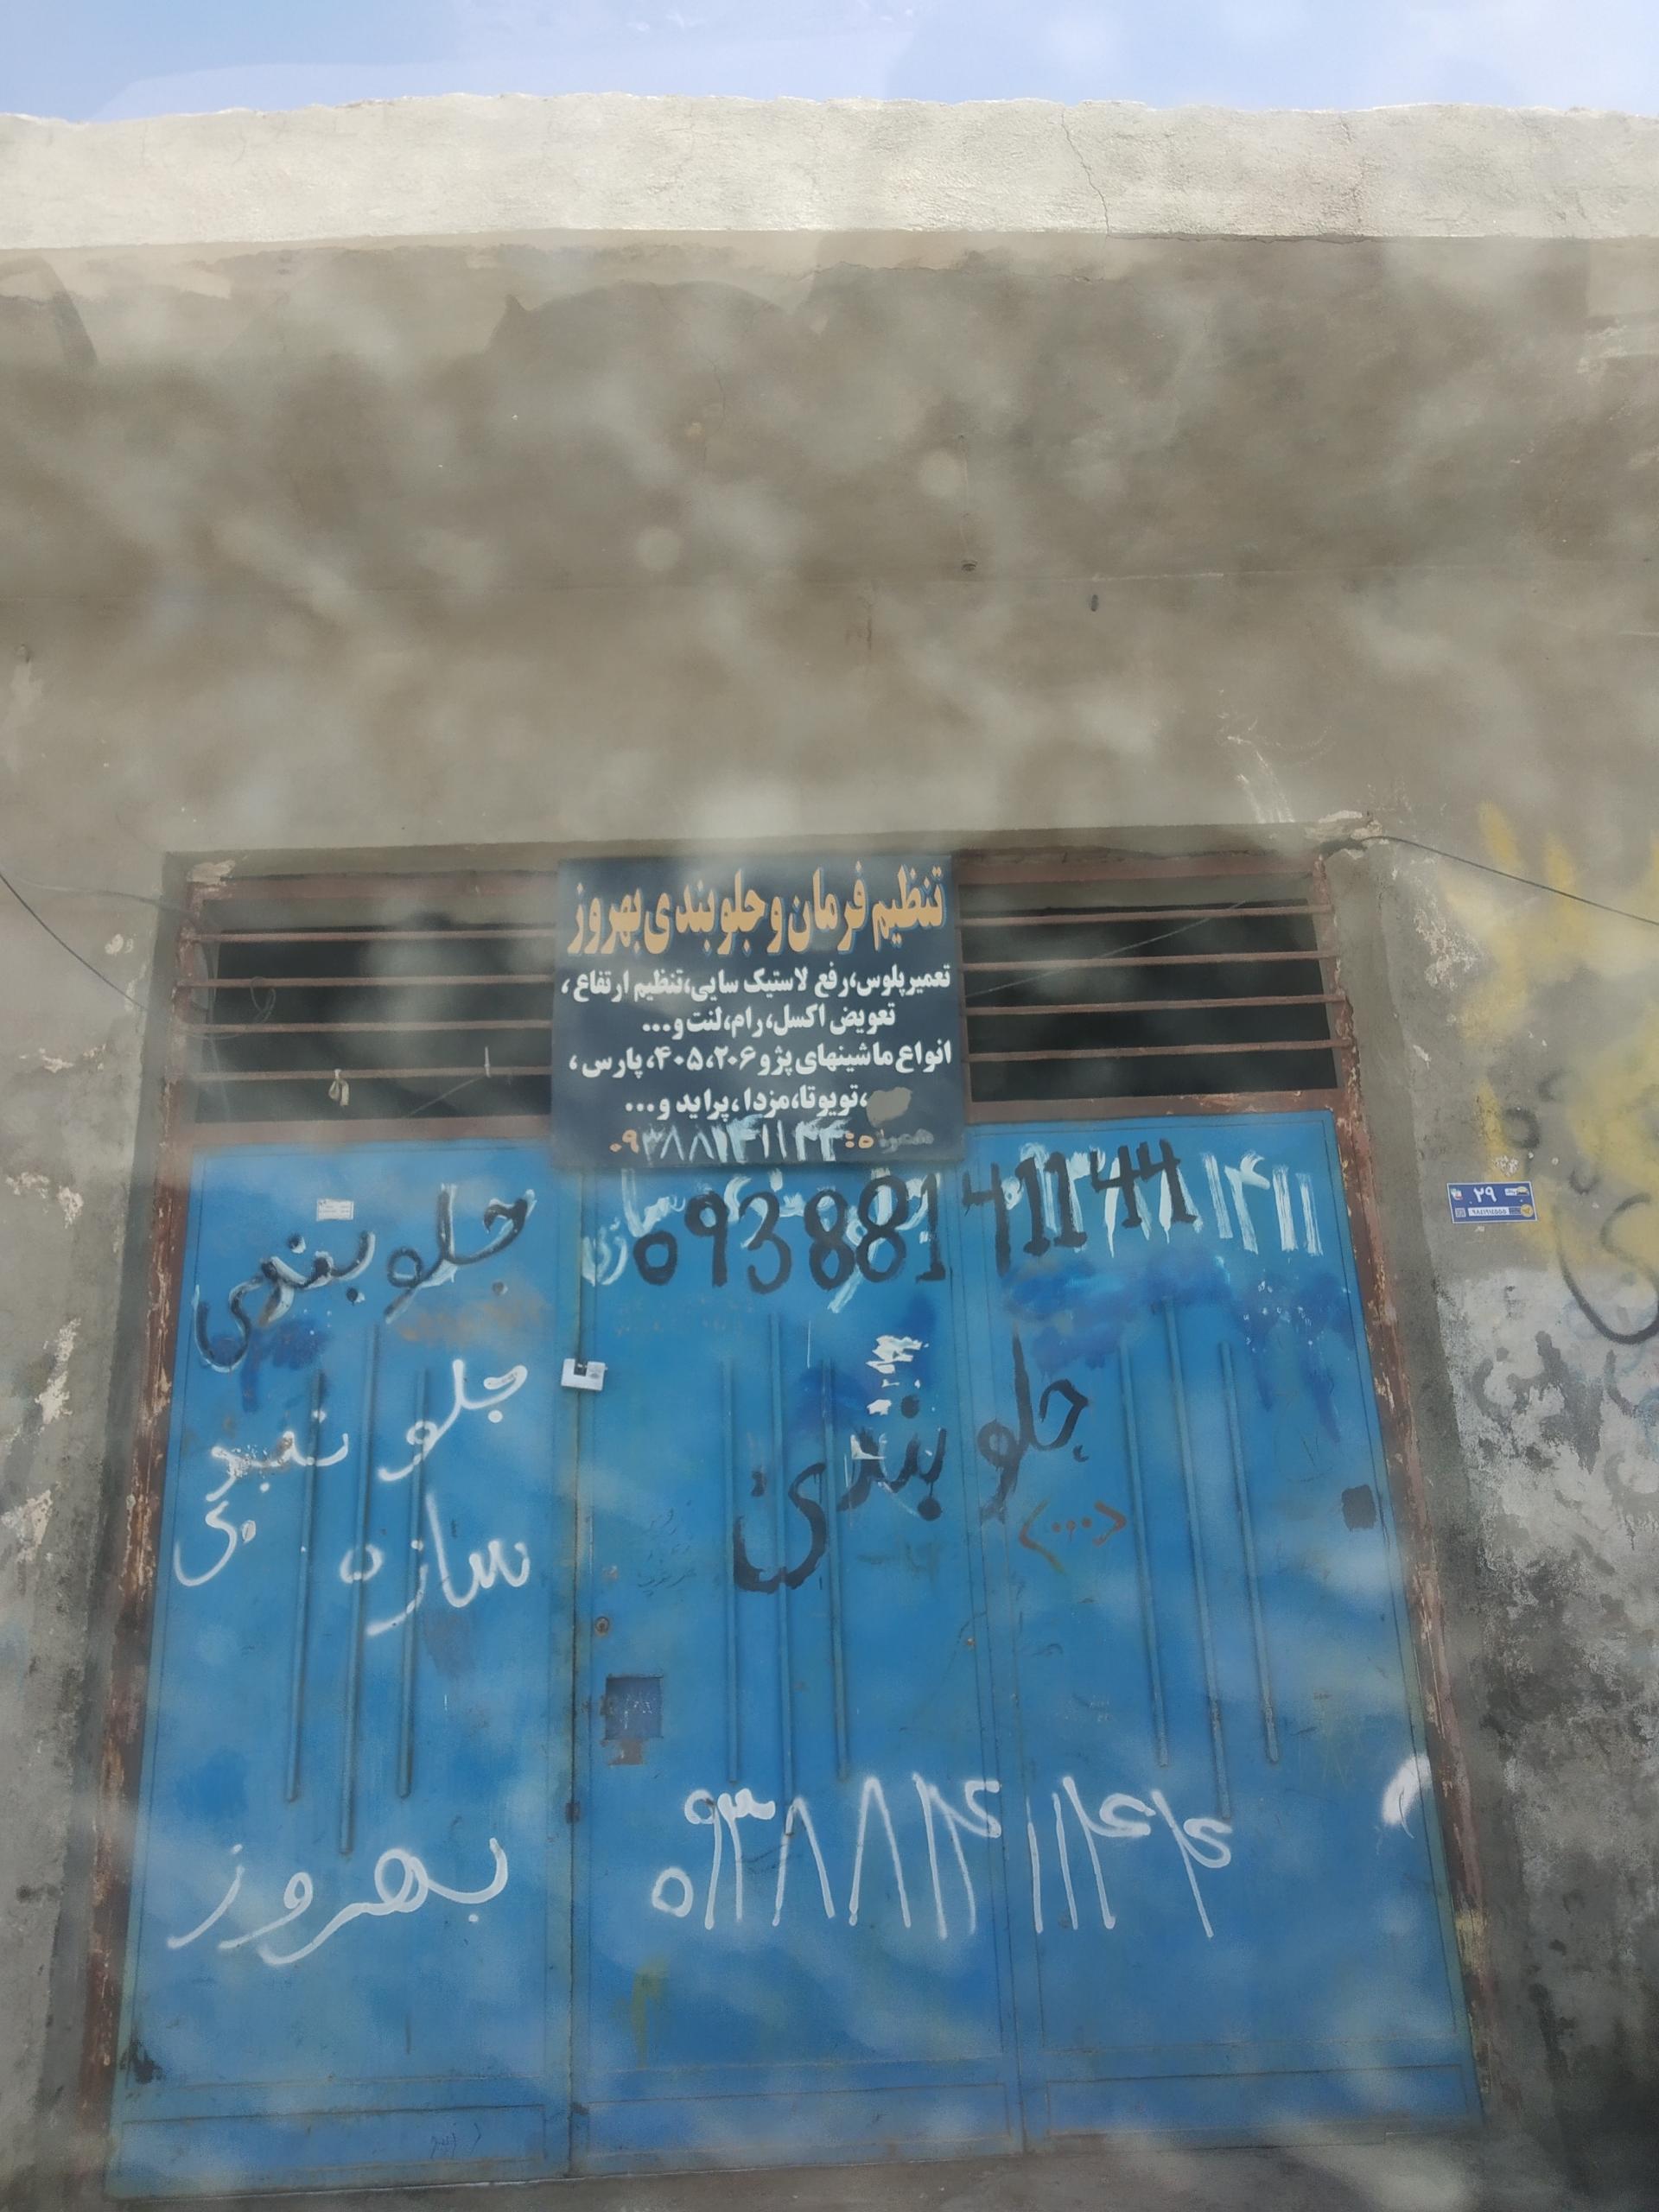 تنظیم فرمان و جلوبندی بهروز
تعمیر پلوس، رفع لاستیک سایی، تنظیم ارتفاع،
تعویض اکسل، رام، لنت و...
انواع ماشینهای پژو ۲۰۶، ۴۰۵، پارس،
،تویوتا، مزدا، پراید و...
۰۹۳۸۸۱۴۱۱۴۴
09388141144
جلوبندی
جلوبندی
سازی
جلوبندی
بهروز
۰۹۳۸۸۱۴۱۱۴۴
۲۹